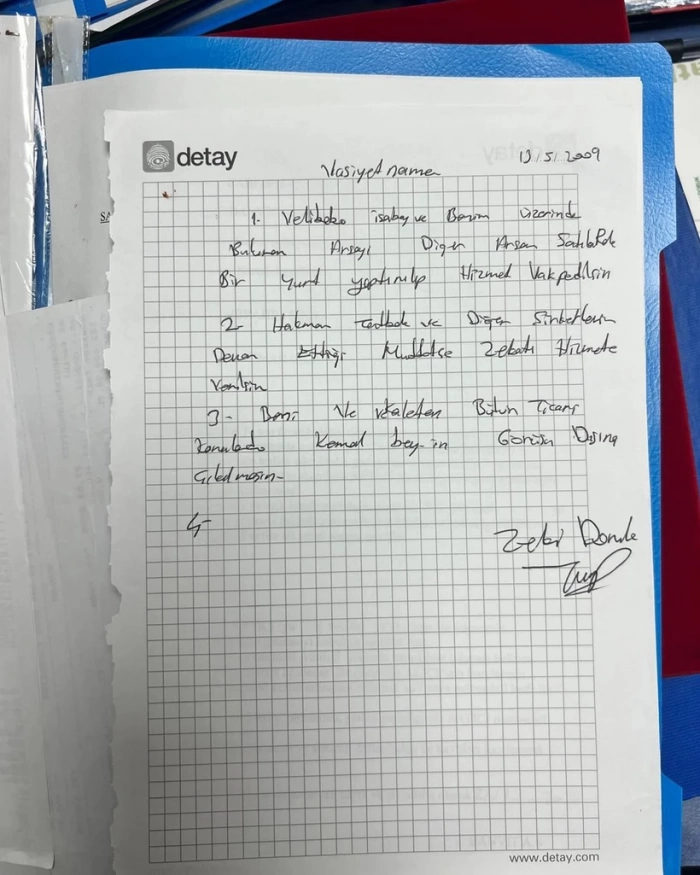 detay
Vasiyetname
13/5/2009
1. Velibaba isabey ve Benim üzerinde
Bulunan Arsayı Diğer Arsam Satılarak
Bir Yurd yaptırılıp Hizmet Vakpedilsin
2 Hakman ve Diğer Şirketlerin
Devam Ettiği Muddetçe Zekatı Hizmete
Verilsin
3- Beni Ve vekaleten Bütün Ticari
Konularda Kemal bey-in Görüşü Dışına
Çıkılmasın-
4-
Zeki
www.detay.com